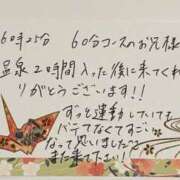 6時25分 60分コースのお兄様
温泉2時間入った後に来てくれ
りがとうございます!!
ずっと運動していても
バテなくてすごいなって
思いました
また来て下さい!